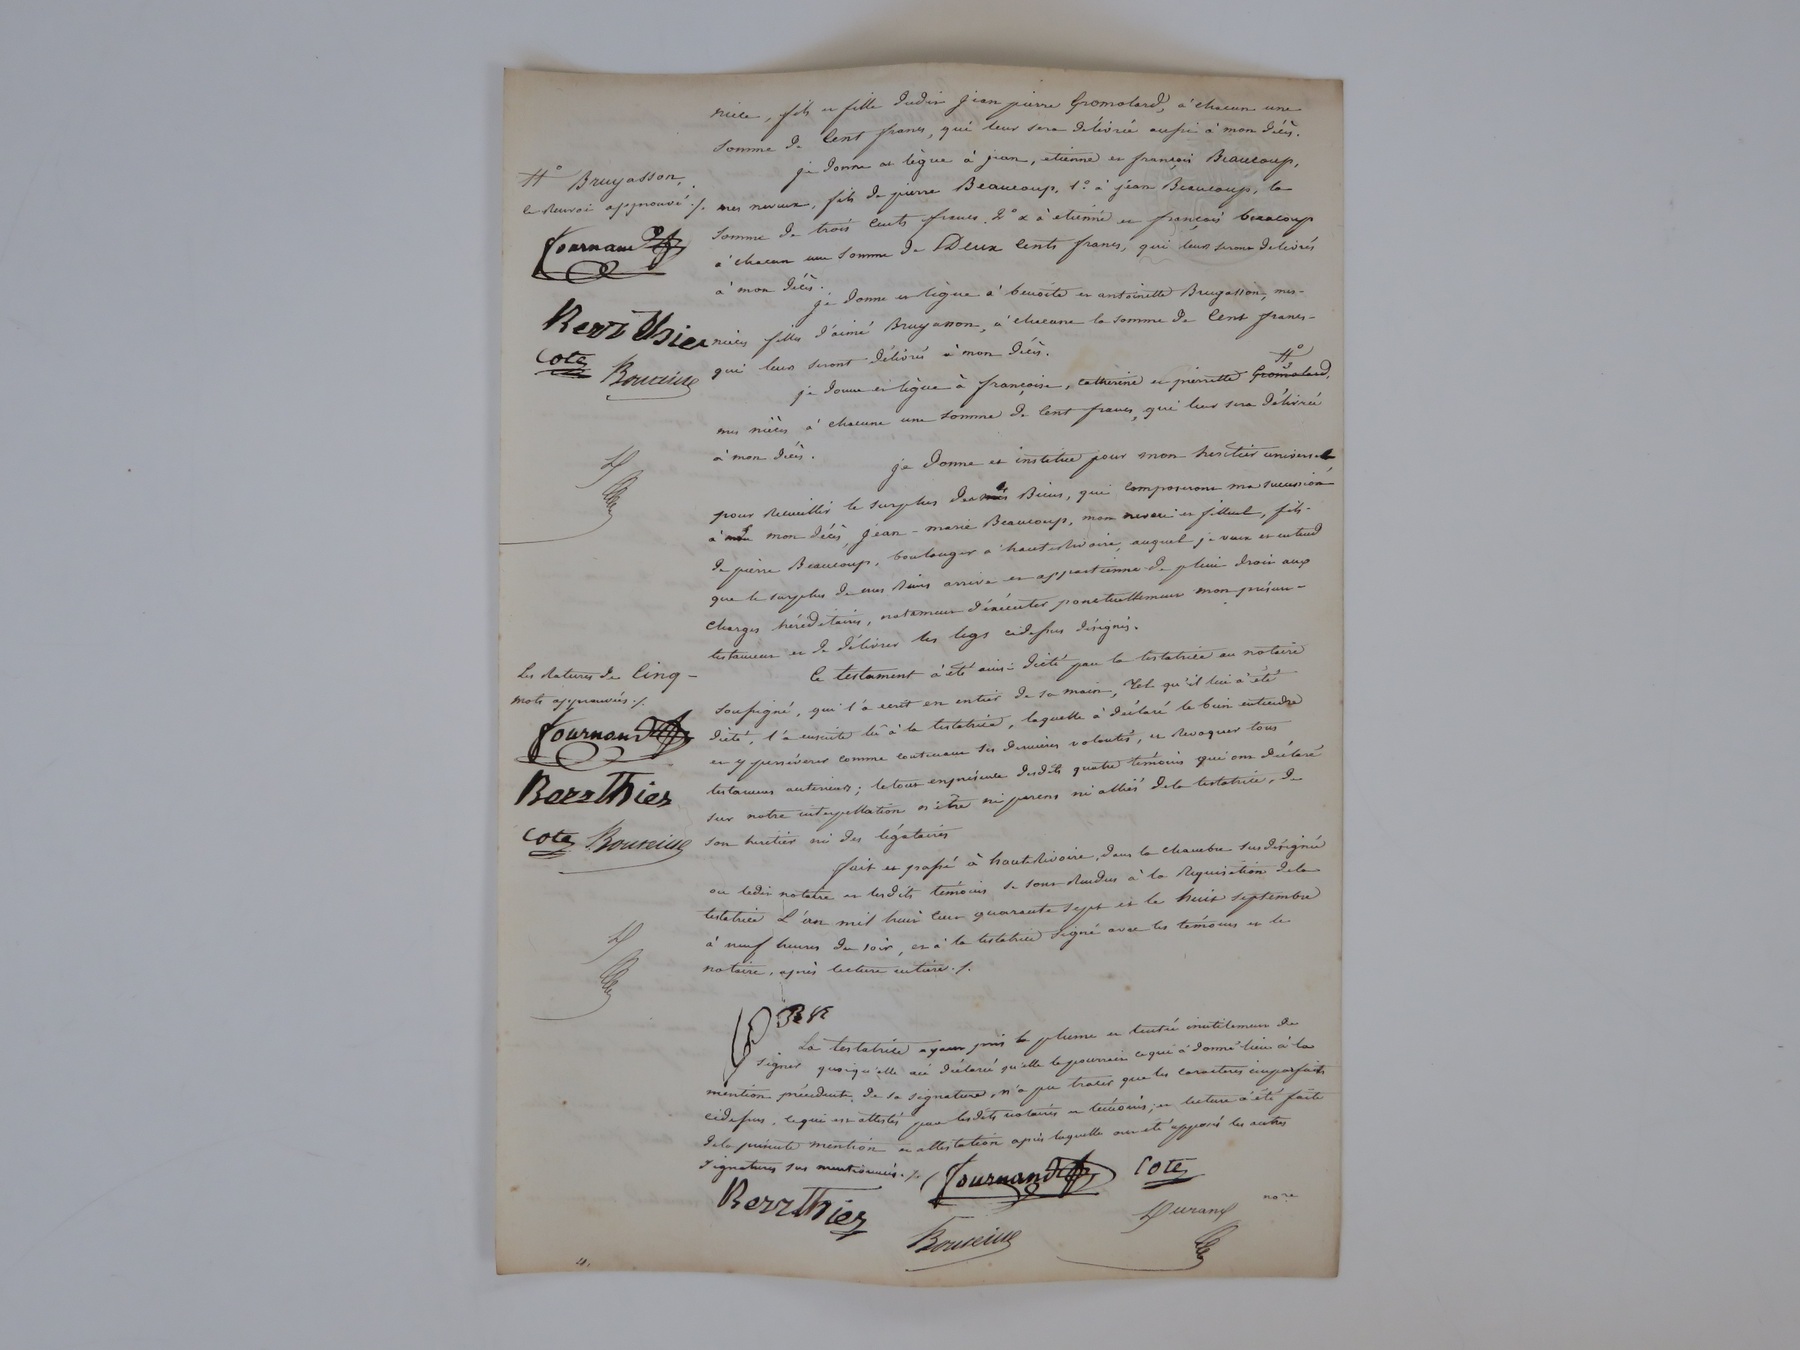 nièce, fils et fille dudit Jean pierre Gromolard, à chacun une
somme de Cent francs, qui leur sera délivrée aussi à mon décès.
je donne et lègue à jean, etienne et françois Beaucoup,
mes neveux, fils de pierre Beaucoup, 1° à jean Beaucoup, la
somme de trois cents francs. 2° à etienne et françois beaucoup
à chacun une somme de Deux Cents francs, qui leur seront délivrés
à mon décès.
je donne et lègue à benoite et antoinette Bruyasson, mes
nièces filles d'aimé Bruyasson, à chacune la somme de Cent francs
qui leur seront délivrés à mon décès.
je donne et lègue à françoise, catherine et pierrette Gromolard, H°
mes nièces à chacune une somme de Cent francs, qui leur sera délivrée
à mon décès.
je donne et institue pour mon héritier universel
pour recueillir le surplus des Biens, qui composeront ma succession
à mon décès, Jean-marie Beaucoup, mon neveu et filleul, fils
de pierre Beaucoup, boulanger à hauterivoire, auquel je veux et entend
que le surplus de mes biens arrive et appartienne de plein droit aux
charges héréditaires, notamment d'exécuter ponctuellement mon présent
testament et de délivrer les legs cidessus désignés.
Ce testament à été ainsi dicté par la testatrice au notaire
soussigné, qui l'a écrit en entier de sa main, tel qu'il lui à été
dicté, l'a ensuite lû à la testatrice, laquelle à déclaré le bien entendre
et y persévérer comme contenant ses dernières volontés, et révoquer tous
testamens antérieurs; le tout en présence desdits quatre témoins qui ont déclaré
sur notre interpellation n'être ni parens ni alliés de la testatrice, de
son héritier ni des légataires
fait et passé à hauterivoire, dans la chambre susdésignée
ou ledit notaire et lesdits témoins se sont rendus à la réquisition de la
testatrice L'an mil huit cent quarante sept et le huit septembre
à neuf heures du soir, et à la testatrice signé avec les témoins et le
notaire, après lecture entière ./.
La testatrice ayant pris la plume et tenté inutilement de
signer quoiqu'elle ait déclaré qu'elle le pourrait ce qui à donné lieu à la
mention précédente de sa signature, n'a pu tracer que les caractères imparfaits
cidessus, ce qui est attesté par lesdits notaire et témoins; et lecture à été faite
de la présente mention et attestation après laquelle ont été apposés les autres
signatures sus mentionnées ./.
Fournand Cote
Berrthier
Bouteille Durand nore
H° Bruyasson,
le renvoi approuvé ./.
Fournand
Berrthier
Cote
Les ratures de Cinq
mots approuvées ./.
Fournand
Berrthier
Cote
4.